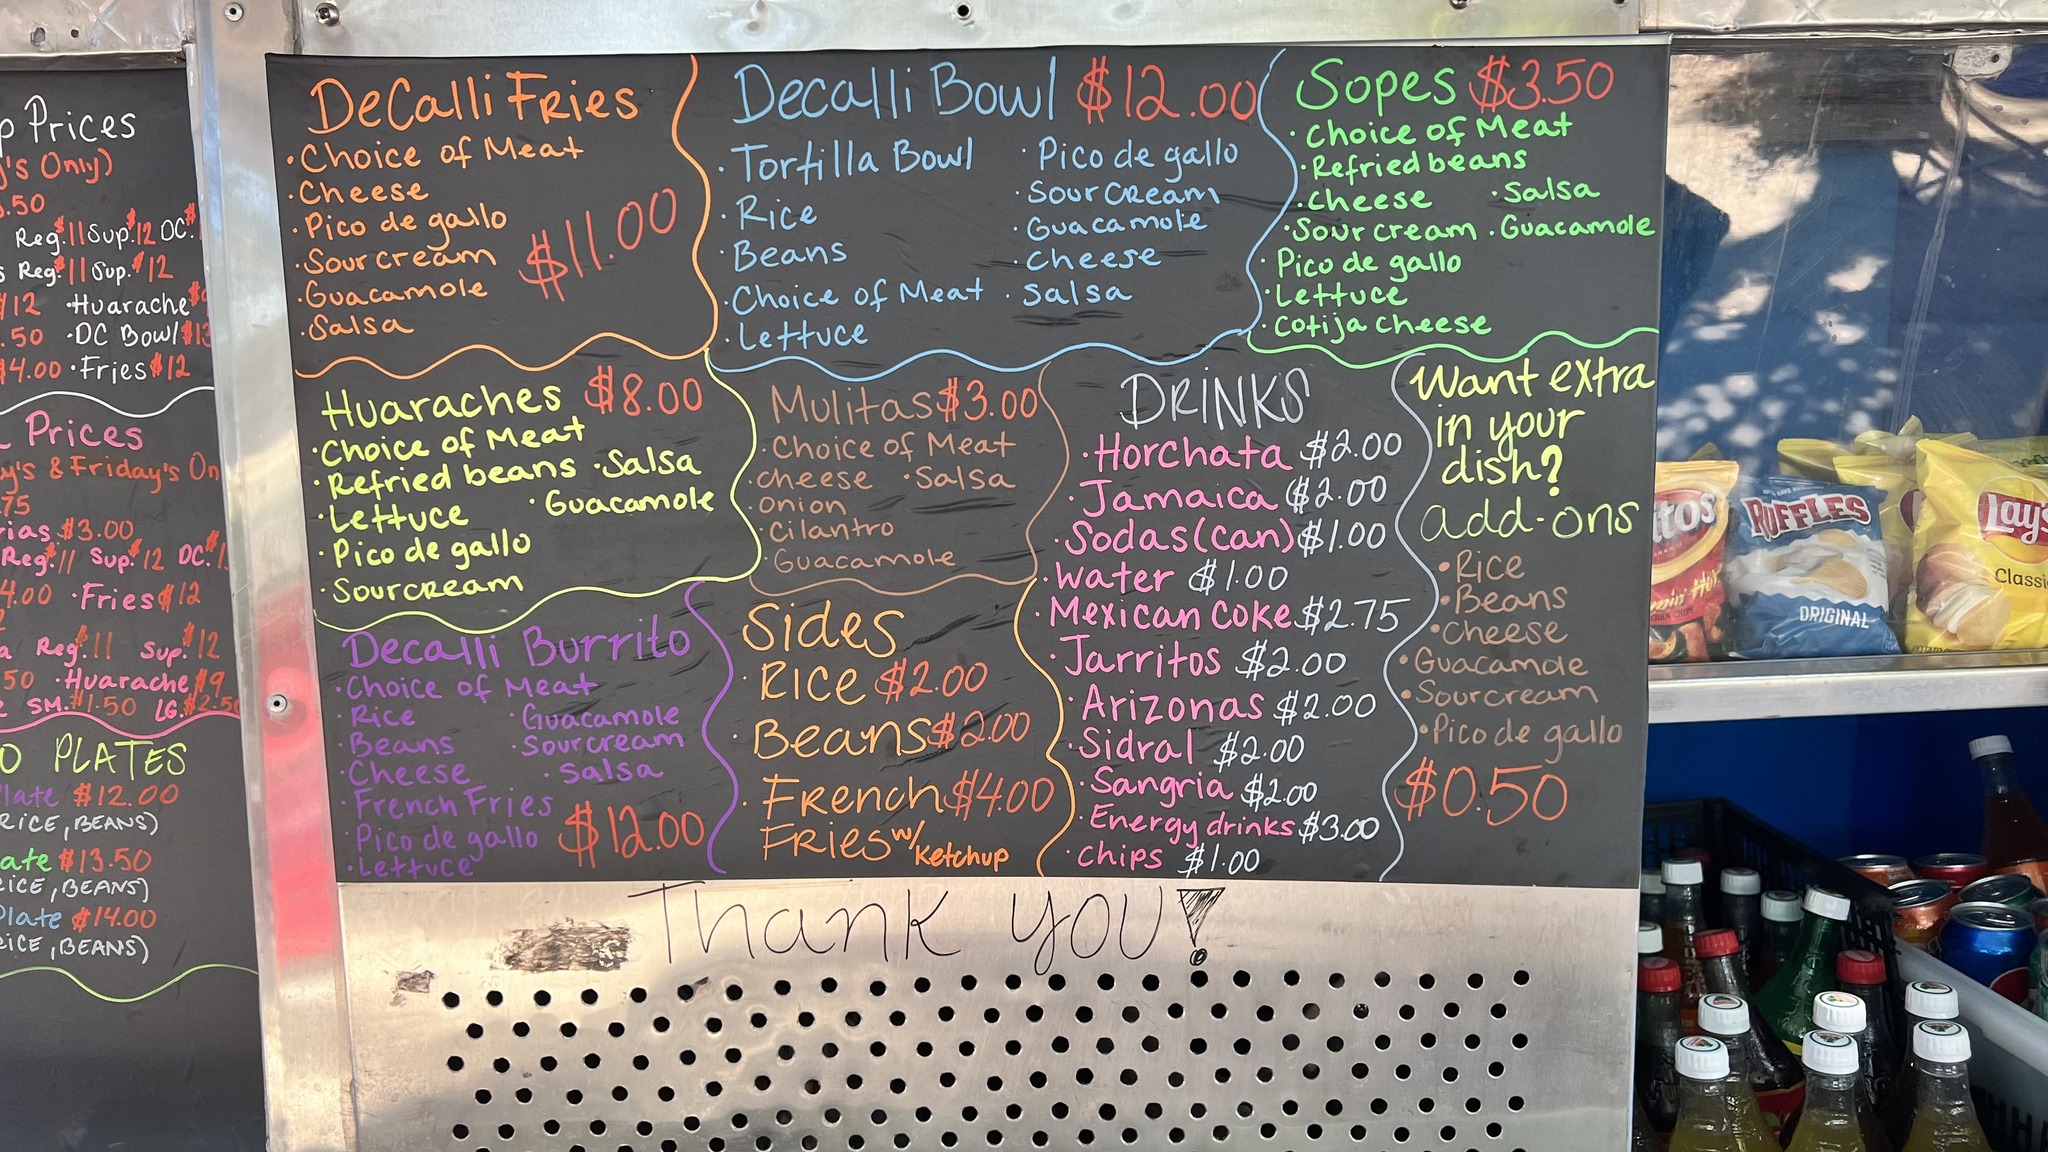 Prices
's Only)
.50
Reg. $11 Sup. $12 DC.
Reg. $11 Sup. $12
$12 · Huarache
.50 · DC Bowl $13
$4.00 · Fries $12
Prices
y's & Friday's On
75
rias $3.00
Reg. 11 Sup. $12 DC.
4.00 · Fries $12
Reg. 11 Sup. $12
50 · Huarache $9
SM. $1.50 LG. $2.50
O PLATES
late $12.00
RICE, BEANS)
ate $13.50
ICE, BEANS)
Plate $14.00
ICE, BEANS)
DeCalli Fries
· Choice of Meat
· Cheese
· Pico de gallo
· Sour cream
· Guacamole
· Salsa
$11.00
Decalli Bowl $12.00
· Tortilla Bowl
· Rice
· Beans
· Choice of Meat
· Lettuce
· Pico de gallo
· Sour Cream
· Guacamole
· Cheese
· Salsa
Sopes $3.50
· Choice of Meat
· Refried beans
· Cheese · Salsa
· Sour cream · Guacamole
· Pico de gallo
· Lettuce
· Cotija Cheese
Huaraches $8.00
· Choice of Meat
· Refried beans · Salsa
· Lettuce · Guacamole
· Pico de gallo
· Sourcream
Mulitas $3.00
· Choice of Meat
· Cheese · Salsa
· Onion
· Cilantro
· Guacamole
DRINKS
· Horchata $2.00
· Jamaica $2.00
· Sodas (can) $1.00
· Water $1.00
· Mexican Coke $2.75
· Jarritos $2.00
· Arizonas $2.00
· Sidral $2.00
· Sangria $2.00
· Energy drinks $3.00
· Chips $1.00
Want extra
in your
dish?
add-ons
· Rice
· Beans
· Cheese
· Guacamole
· Sourcream
· Pico de gallo
$0.50
Decalli Burrito
· Choice of Meat
· Rice · Guacamole
· Beans · Sourcream
· Cheese · Salsa
· French Fries
· Pico de gallo
· Lettuce
$12.00
Sides
· Rice $2.00
· Beans $2.00
· French $4.00
Fries w/ Ketchup
Thank you!
itos
RUFFLES
ORIGINAL
Lay's
Classic